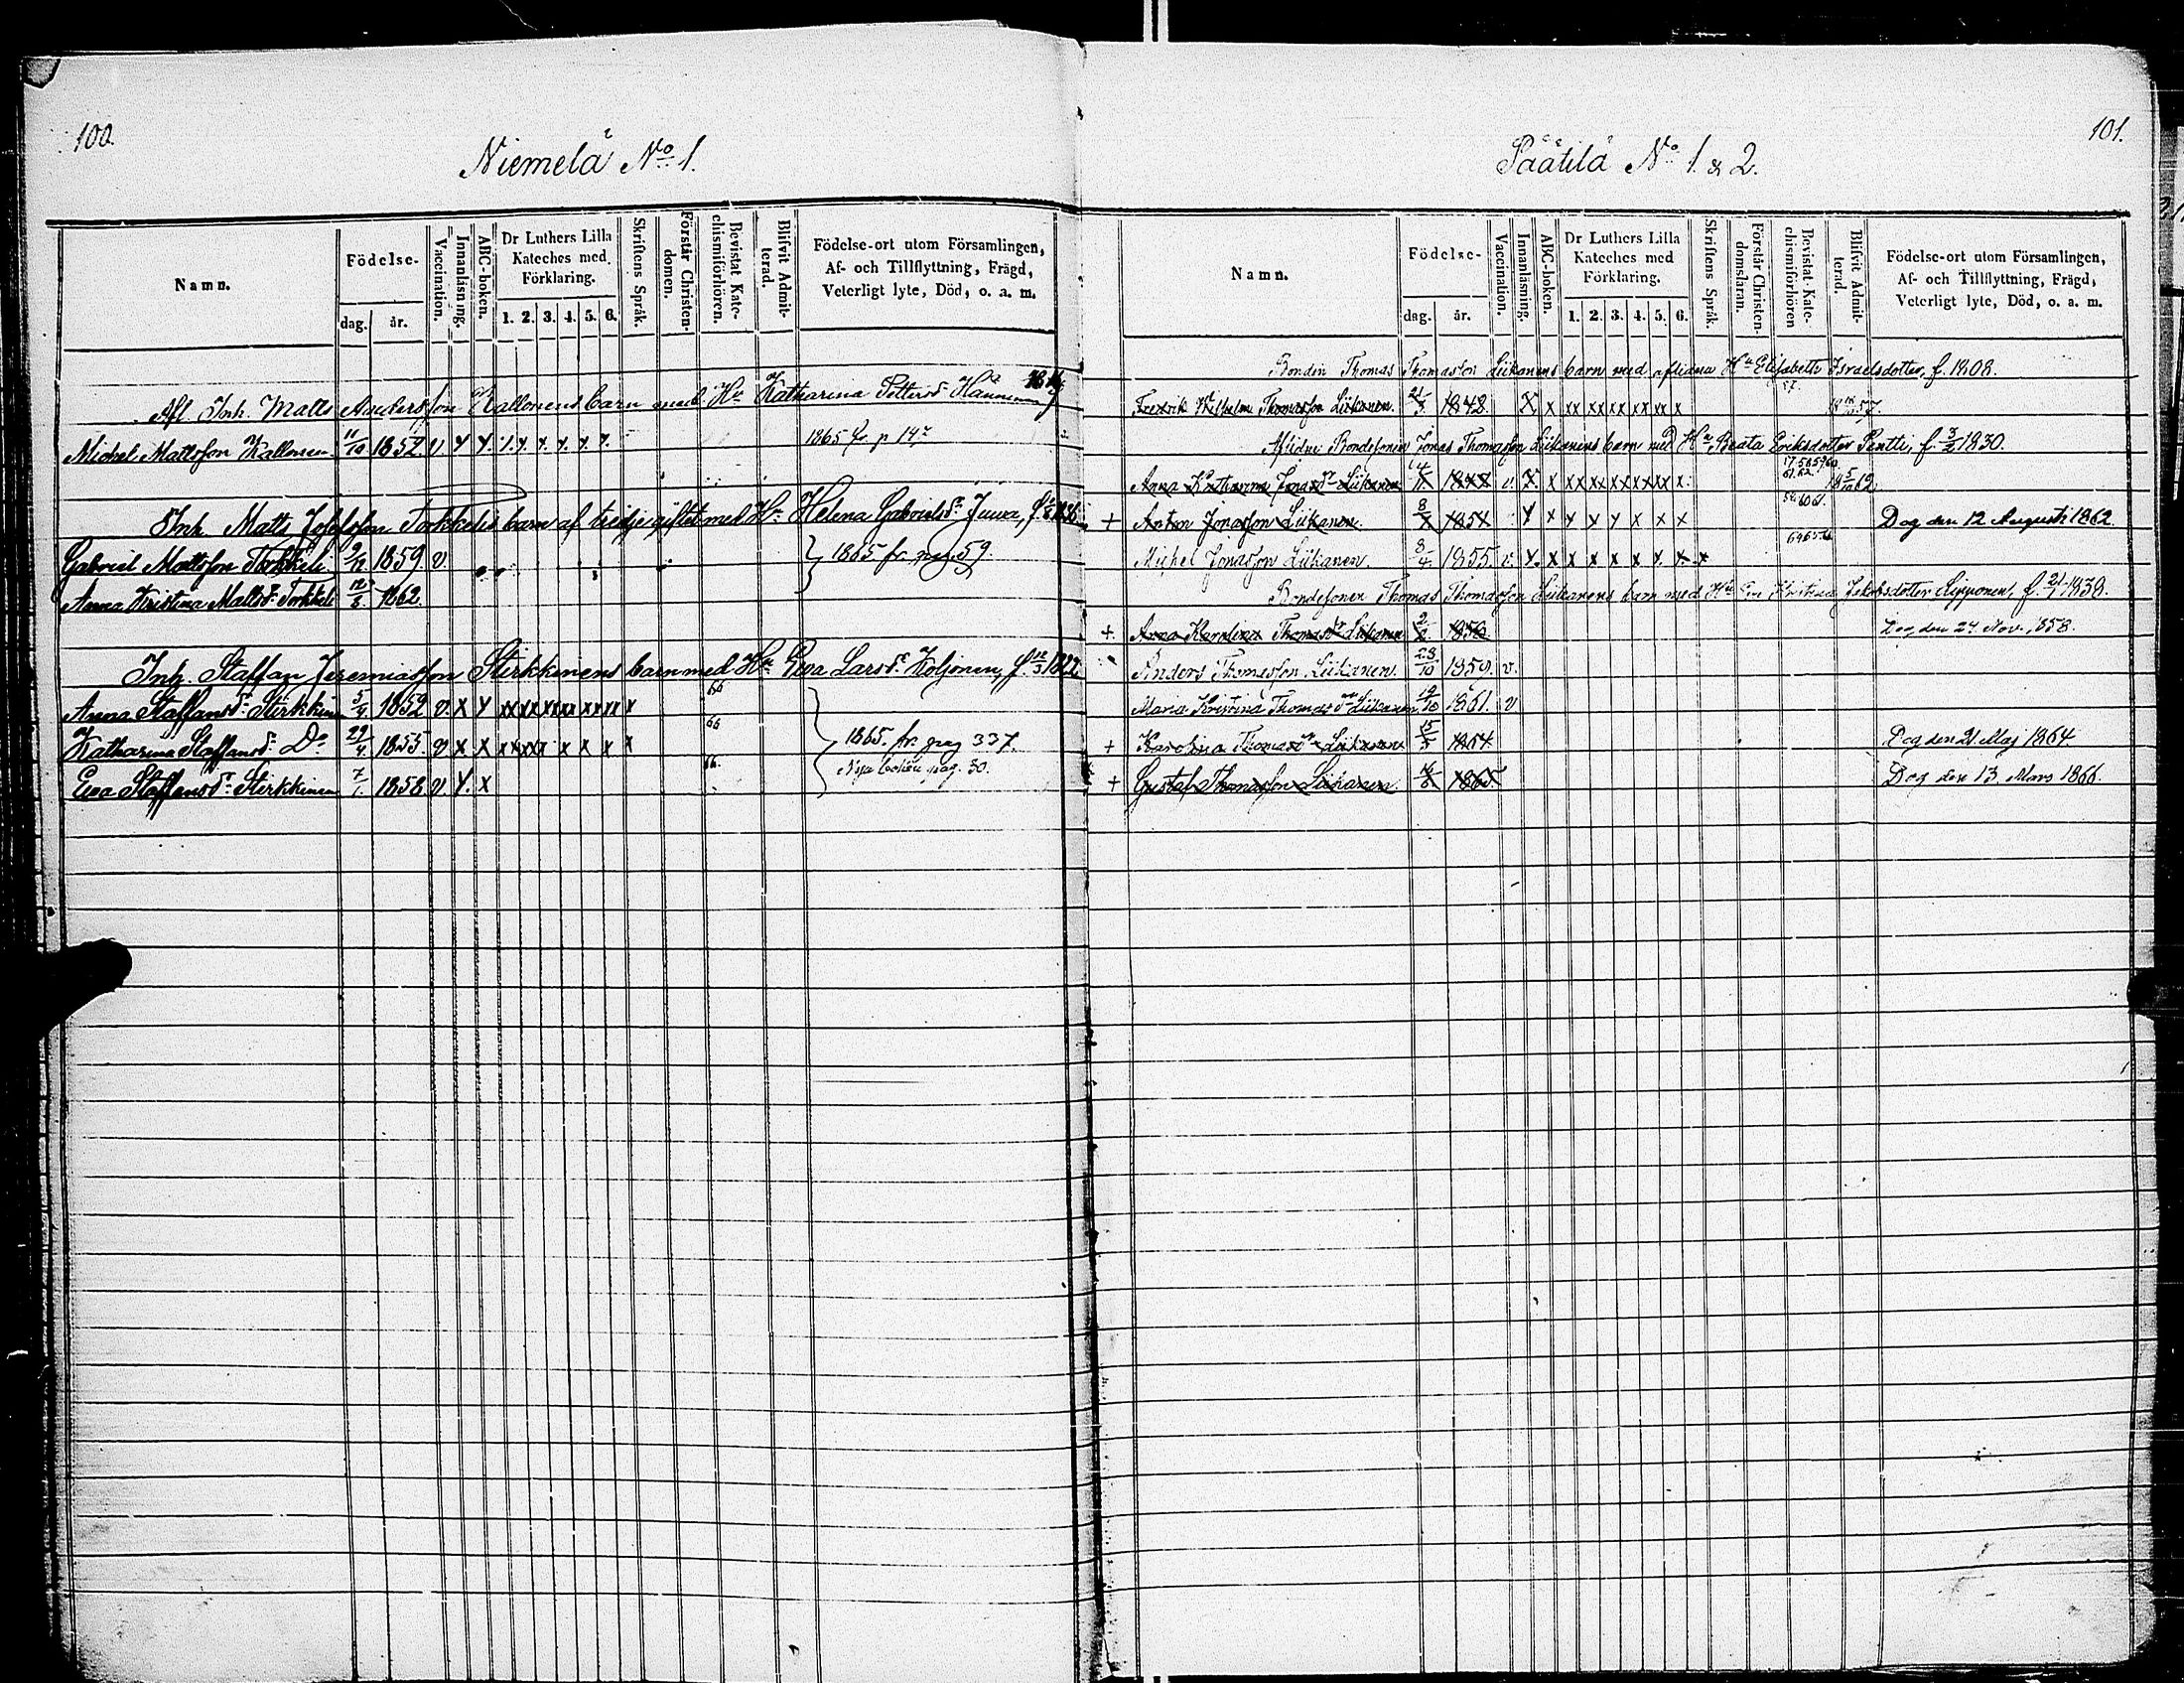 100.
Niemelä No 1.
Namn.
Födelse-
dag.
år.
Vaccination.
Innanläsning.
ABC-boken.
Dr Luthers Lilla
Kateches med
Förklaring.
1. 2. 3. 4. 5. 6.
Skriftens Språk.
Förstår Christen-
domen.
Bevistat Kate-
chismiförhören.
Blifvit Admit-
terad.
Födelse-ort utom Församlingen,
Af- och Tillflyttning, Frägd,
Veterligt lyte, Död, o. a. m.
Afl. Inh. Matts Andersson Kallonens barn med Hu Katharina Pettersdr
Michel Mattsson Kallonen 11/10 1852 v 1865 fr. p 147
Inh. Matts Josefsson Torkkelis barn af tredje giftet med Hu Helena Gabrielsdr Juwa,
Gabriel Mattsson Torkkeli 9/12 1859. v. 1865 fr. pag. 59.
Anna Kristina Mattsdr Torkkeli 1862.
Inh. Staffan Jeremiasson Stirkkinens barn med Hu Eva Larsdr Koljonen, f. 12/3 1822
Anna Staffansdr Stirkkinen 5/4 1852 v. x x xx xx xx xx xx x 66
Katharina Staffansdr Do 29/4 1855. v x x 66 1865. fr. pag 337.
Eva Staffansdr Stirkkinen 7/1 1858 v. x. x 66. Nya boken pag. 30.
101.
Päätilä No 1. & 2.
Namn.
Födelse-
dag.
år.
Vaccination.
Innanläsning.
ABC-boken.
Dr Luthers Lilla
Kateches med
Förklaring.
1. 2. 3. 4. 5. 6.
Skriftens Språk.
Förstår Christen-
domsläran.
Bevistat Kate-
chismiförhören
Blifvit Admit-
terad.
Födelse-ort utom Församlingen,
Af- och Tillflyttning, Frägd,
Veterligt lyte, Död, o. a. m.
Bonden Thomas Thomasson Liikanens barn med aflidna Hu Elisabeth Israelsdotter, f. 1808.
Fredrik Wilhelm Thomasson Liikanen. 21/3 1842. x x xx xx xx xx xx x 57.
Aflidne Bondesonen Jonas Thomasson Liikanens barn med Hu Beata Eriksdotter Pentti, f. 3/2 1830.
Anna Katharina Jonasdr Liikanen v. x x xx xx xx xx xx x
+ Anton Jonasson Liikanen. 1854 x x x x x x x x Dog den 12 Augusti 1862.
Michel Jonasson Liikanen. 8/4 1855. v. x. x x x x x x. x x
Bondesonen Thomas Thomasson Liikanens barn med Hu Eva Kristina Jakobsdotter Sipponen, f. 21/1 1838.
+ Anna Karolina Thomasdr Liikanen 1858 Dog den 24 Nov. 1858.
Anders Thomasson Liikanen. 28/10 1859. v.
Maria Kristina Thomasdr Liikanen 19/10 1861. v
+ Karolina Thomasdr Liikanen 15/5 1864 Dog den 21 Maj 1864.
+ Gustaf Thomasson Liikanen. 1865. Dog den 13. Mars 1866.